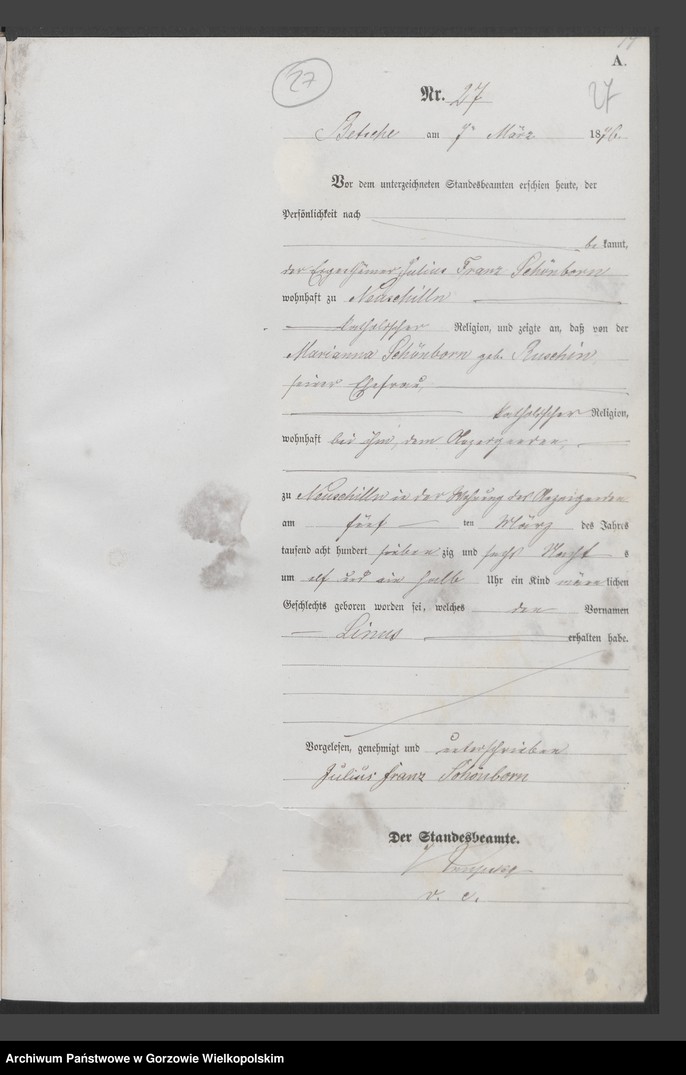 A.
27
27
Nr. 27
Betsche am 7 März 1876
Vor dem unterzeichneten Standesbeamten erschien heute, der
Persönlichkeit nach
be kannt,
der Eigenthümer Julius Franz Schönborn
wohnhaft zu
katholischer Religion, und zeigte an, daß von der
Marianna Schönborn geb. Ruschin
seiner Ehefrau,
katholischer Religion,
wohnhaft bei ihm, dem Anzeigenden,
zu in der Wohnung des Anzeigenden
am fünf ten März des Jahres
tausend acht hundert sieben zig und sechs Nacht s
um elf und ein halb Uhr ein Kind männ lichen
Geschlechts geboren worden sei, welches den Vornamen
Linus erhalten habe.
Vorgelesen, genehmigt und unterschrieben
Julius Franz Schönborn
Der Standesbeamte.
Archiwum Państwowe w Gorzowie Wielkopolskim